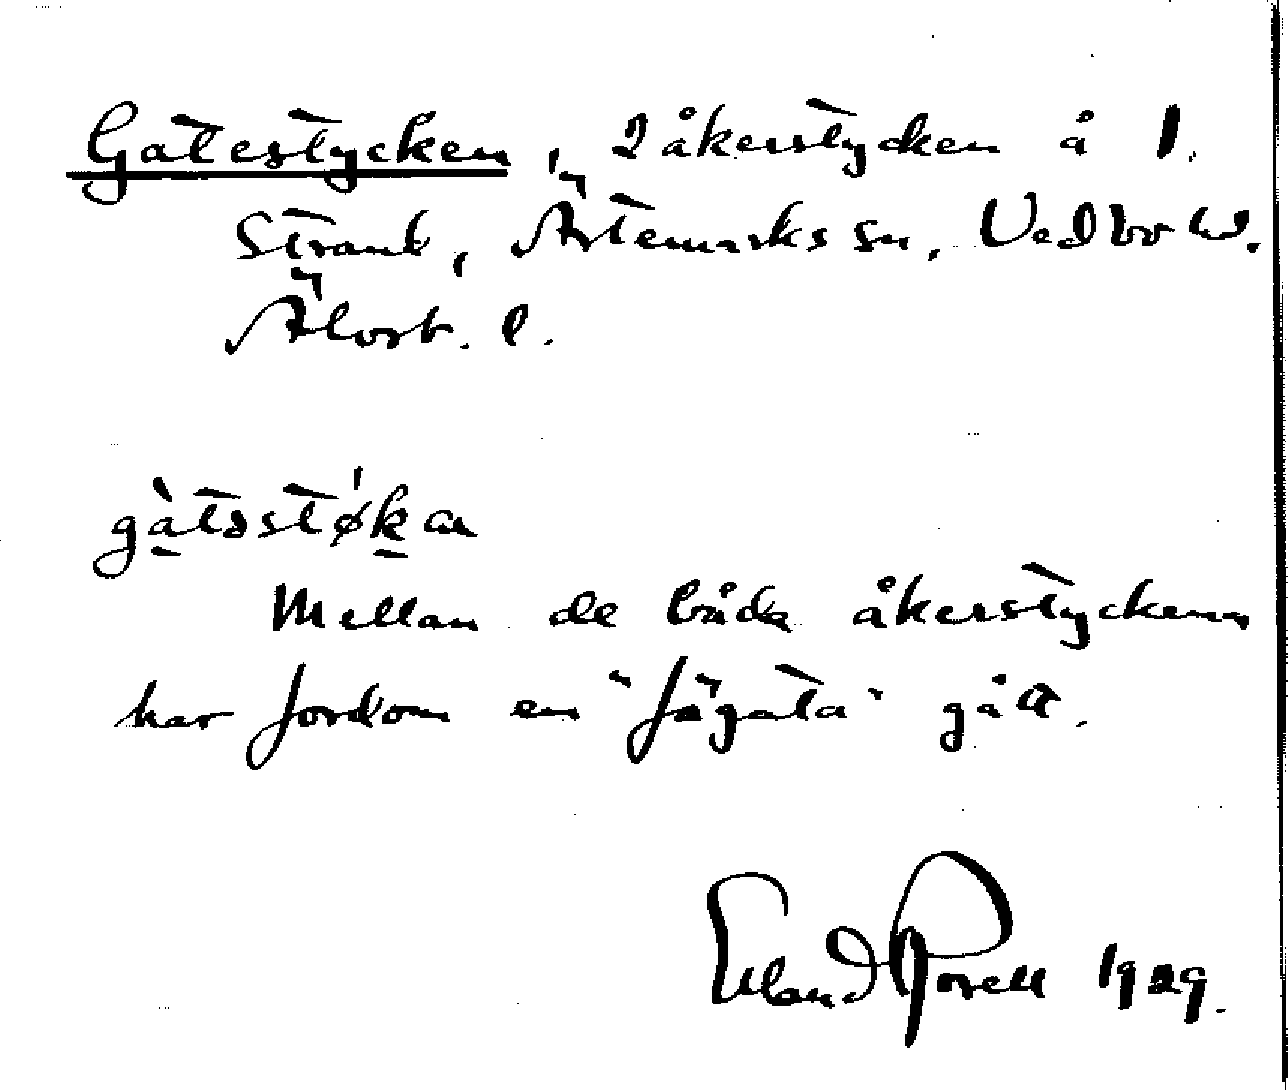 Gatestycken, 2 åkerstycken å 1.
Strand, Ärtemarks sn, Vedbo hd.
Älvsb. l.
gàtəstø'kan
Mellan de båda åkerstyckena
har fordom en "fägata" gått.
Erland Rosell 1929.